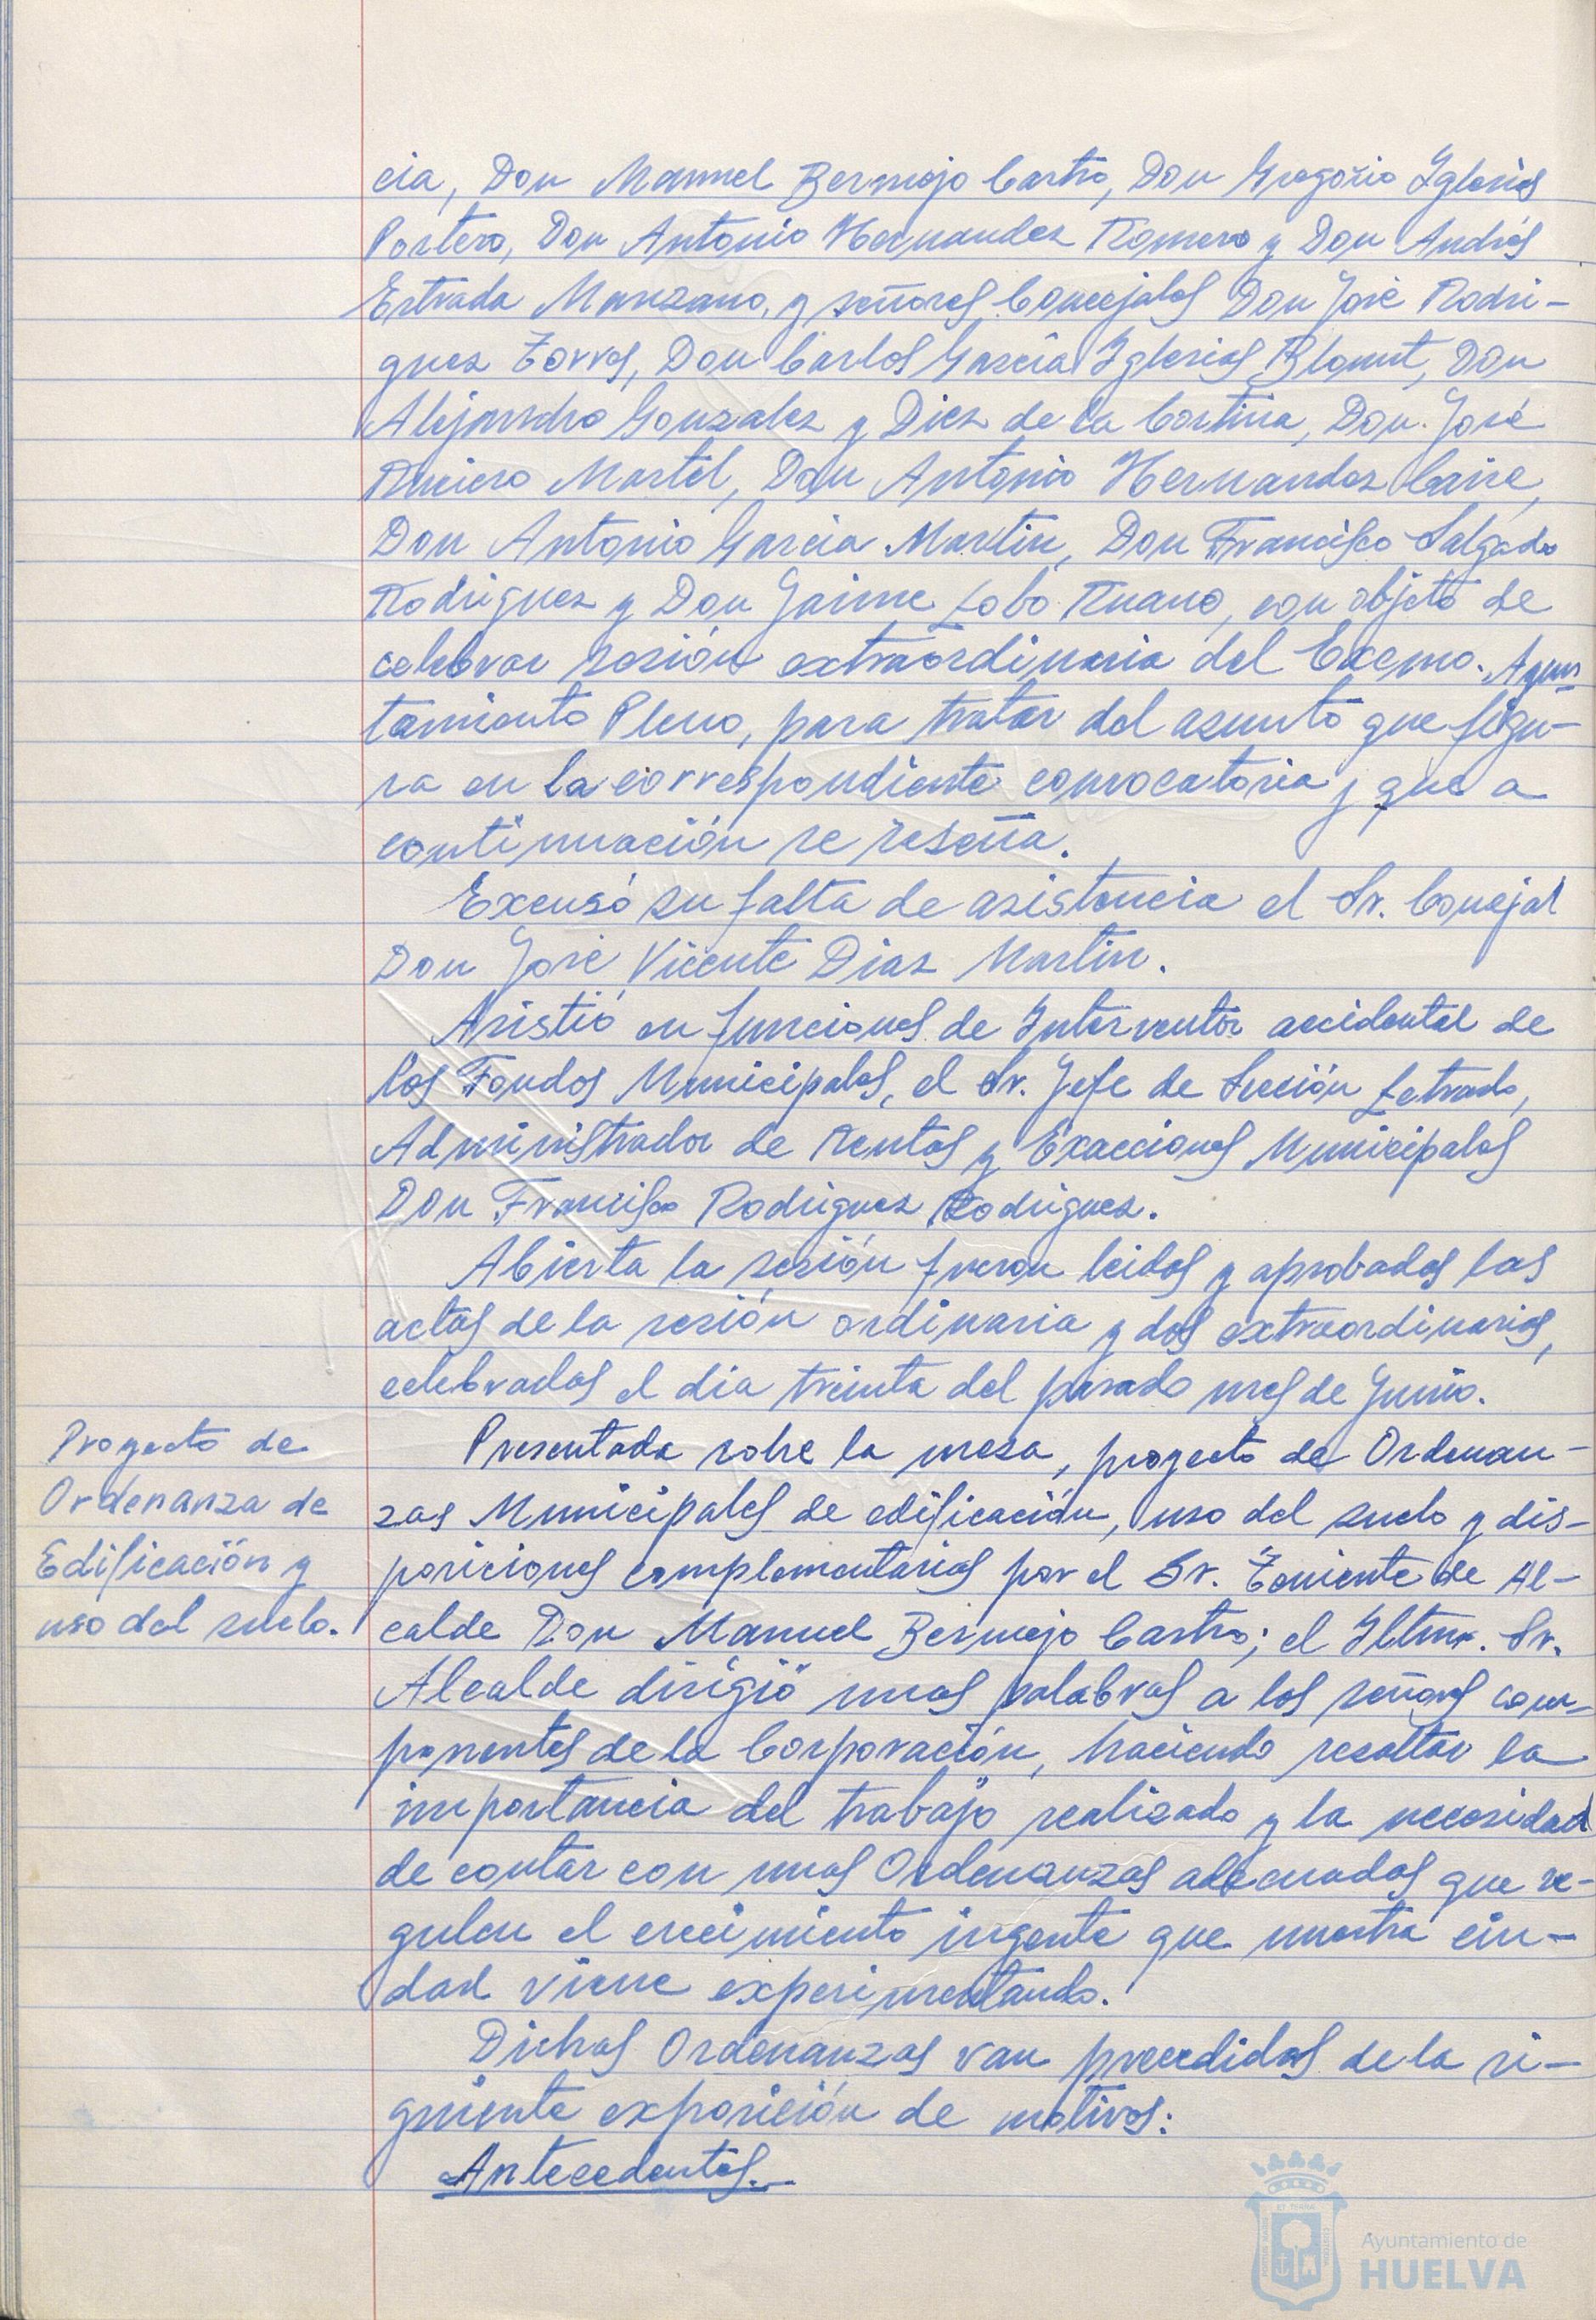 cia, Don Manuel Bermejo Castro, Don Gregorio Iglesias
Portero, Don Antonio Hernandez Romero y Don Andrés
Estrada Manzano, y señores Concejales Don José Rodri-
guez Torres, Don Carlos García Iglesias Blount, Don
Alejandro Gonzalez y Diez de la Cortina, Don José
Martel, Don Antonio Hernandez
Don Antonio Garcia Martin, Don Francisco Salgado
Rodriguez y Don Jaime Lobo Ruano, con objeto de
celebrar sesión extraordinaria del Excmo. Ayun-
tamiento Pleno, para tratar del asunto que figu-
ra en la correspondiente convocatoria y que a
continuación se reseña.
Excusó su falta de asistencia el Sr. Concejal
Don José Vicente Diaz Martin.
Asistió en funciones de Interventor accidental de
los Fondos Municipales, el Sr. Jefe de Sección Letrado,
Administrador de Rentas y Exacciones Municipales
Don Francisco Rodriguez Rodriguez.
Abierta la sesión fueron leidas y aprobadas las
actas de la sesión ordinaria y dos extraordinarias,
celebradas el dia treinta del pasado mes de Junio.
Proyecto de
Ordenanza de
Edificación y
uso del suelo.
Presentada sobre la mesa, proyecto de Ordenan-
zas Municipales de edificación, uso del suelo y dis-
posiciones complementarias por el Sr. Teniente de Al-
calde Don Manuel Bermejo Castro; el Iltmo. Sr.
Alcalde dirigió unas palabras a los señores com-
ponentes de la Corporación, haciendo resaltar la
importancia del trabajo realizado y la necesidad
de contar con unas Ordenanzas adecuadas que re-
gulen el crecimiento ingente que nuestra ciu-
dad viene experimentando.
Dichas Ordenanzas van precedidas de la si-
guiente exposición de motivos:
Antecedentes.-
Ayuntamiento de
HUELVA